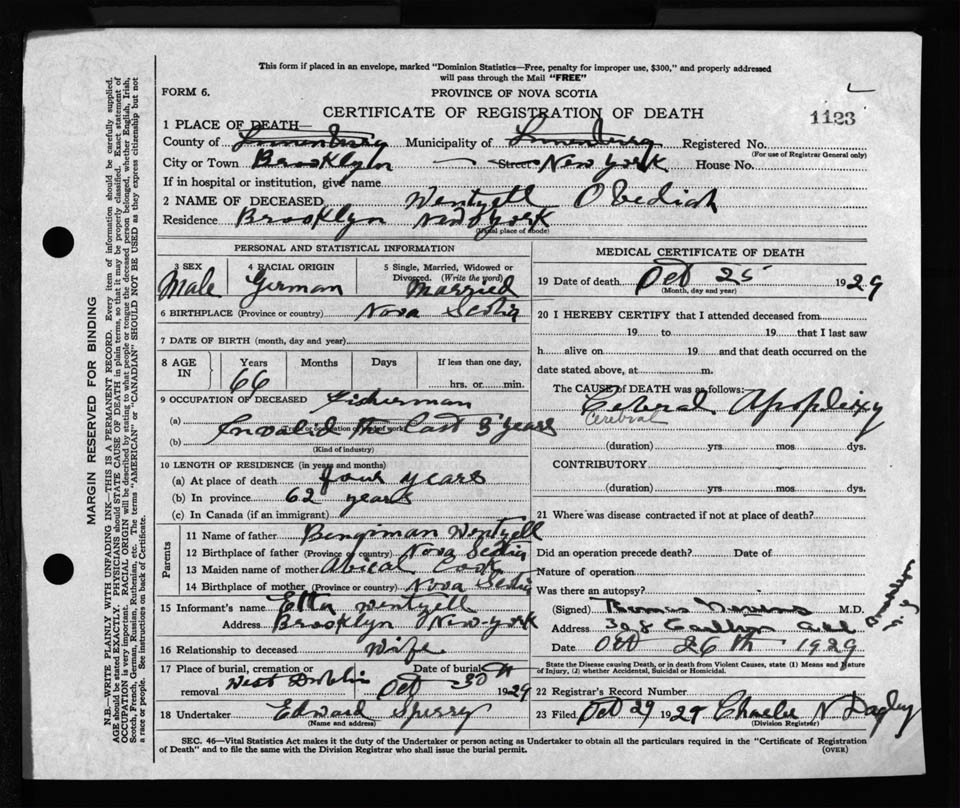 This form if placed in an envelope, marked "Dominion Statistics—Free, penalty for improper use, $300," and properly addressed
will pass through the Mail "FREE"
FORM 6.
PROVINCE OF NOVA SCOTIA
CERTIFICATE OF REGISTRATION OF DEATH
1123
1 PLACE OF DEATH—
County of Lunenburg Municipality of Lunenburg Registered No.
(For use of Registrar General only)
City or Town Brooklyn Street New York House No.
If in hospital or institution, give name
2 NAME OF DECEASED Wentzell Obediah
Residence Brooklyn New York
(Usual place of abode)
PERSONAL AND STATISTICAL INFORMATION
3 SEX Male
4 RACIAL ORIGIN German
5 Single, Married, Widowed or Divorced. (Write the word) Married
6 BIRTHPLACE (Province or country) Nova Scotia
7 DATE OF BIRTH (month, day and year)
8 AGE IN Years 66 Months Days If less than one day, hrs. or min.
9 OCCUPATION OF DECEASED Fisherman
(a)
(b) Invalid the last 3 years
(Kind of industry)
10 LENGTH OF RESIDENCE (in years and months)
(a) At place of death four years
(b) In province 62 years
(c) In Canada (if an immigrant)
Parents
11 Name of father Bengiman Wentzell
12 Birthplace of father (Province or country) Nova Scotia
13 Maiden name of mother Abical Cook
14 Birthplace of mother (Province or country) Nova Scotia
15 Informant's name Etta Wentzell
Address Brooklyn New-York
16 Relationship to deceased Wife
17 Place of burial, cremation or removal West Dublin
Date of burial Oct 30th 1929
18 Undertaker Edward Sperry
(Name and address)
MEDICAL CERTIFICATE OF DEATH
19 Date of death Oct 25 1929
(Month, day and year)
20 I HEREBY CERTIFY that I attended deceased from
19 to 19 that I last saw
h alive on 19 and that death occurred on the
date stated above, at m.
The CAUSE of DEATH was as follows:
Cebral Apoplexy
Cerebral
(duration) yrs. mos. dys.
CONTRIBUTORY
(duration) yrs. mos. dys.
21 Where was disease contracted if not at place of death?
Did an operation precede death? Date of
Nature of operation
Was there an autopsy?
(Signed) M.D.
Address 308 Brooklyn
Date Oct 26th 1929
State the Disease causing Death, or in death from Violent Causes, state (1) Means and Nature
of Injury, (2) whether Accidental, Suicidal or Homicidal.
22 Registrar's Record Number
23 Filed Oct 29 1929 Charles N Dagley
(Division Registrar)
SEC. 46—Vital Statistics Act makes it the duty of the Undertaker or person acting as Undertaker to obtain all the particulars required in the "Certificate of Registration
of Death" and to file the same with the Division Registrar who shall issue the burial permit.
(OVER)
MARGIN RESERVED FOR BINDING
N.B.—WRITE PLAINLY WITH UNFADING INK—THIS IS A PERMANENT RECORD. Every item of information should be carefully supplied.
AGE should be stated EXACTLY. PHYSICIANS should STATE CAUSE OF DEATH in plain terms, so that it may be properly classified. Exact statement of
OCCUPATION is very important. RACIAL ORIGIN will be described by stating to what people or tongue the deceased person belonged, whether English, Irish,
Scotch, French, German, Russian, Ruthenian, etc. The terms "AMERICAN" or "CANADIAN" SHOULD NOT BE USED as they express citizenship but not
a race or people. See instructions on back of Certificate.